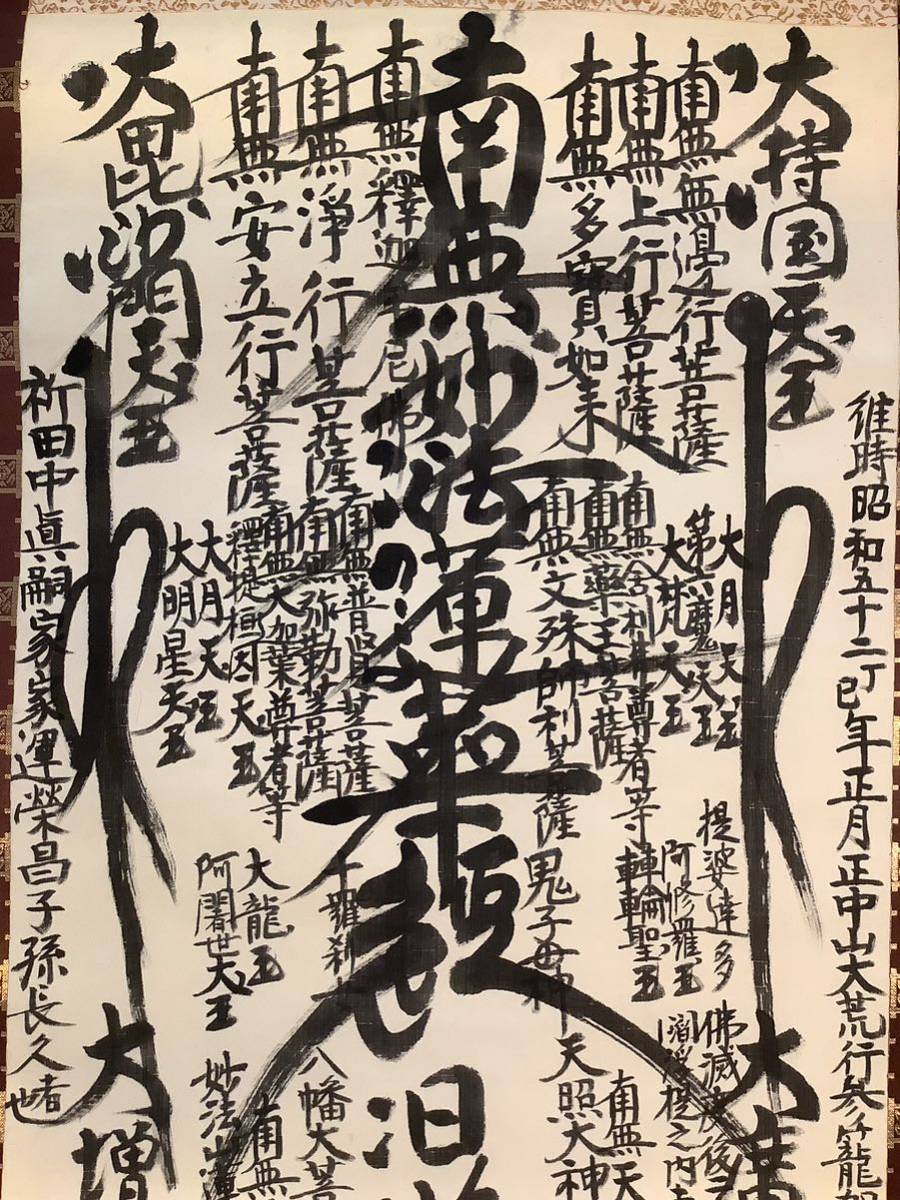 維時昭和五十二丁巳年正月正中山大荒行参籠
大持国天王
大
南無無邊行菩薩
南無上行菩薩
南無多寳如来
南無妙法蓮華經
南無釋迦牟尼佛
南無淨行菩薩
南無安立行菩薩
大毘沙門天王
大月天王
第六魔王
大梵天王
南無舎利弗尊者等
南無藥王菩薩
南無文殊師利菩薩
南無普賢菩薩
南無弥勒菩薩
南無大加葉尊者等
釋提桓因天王
大月天王
大明星天王
提婆達多
阿修羅王
轉輪聖王
鬼子母神
十羅刹女
大龍王
阿闍世大王
佛滅度後
閻浮提之内
南無天
天照大神
日
八幡大菩
南無
妙法
大増
祈田中眞嗣家家運榮昌子孫長久者也